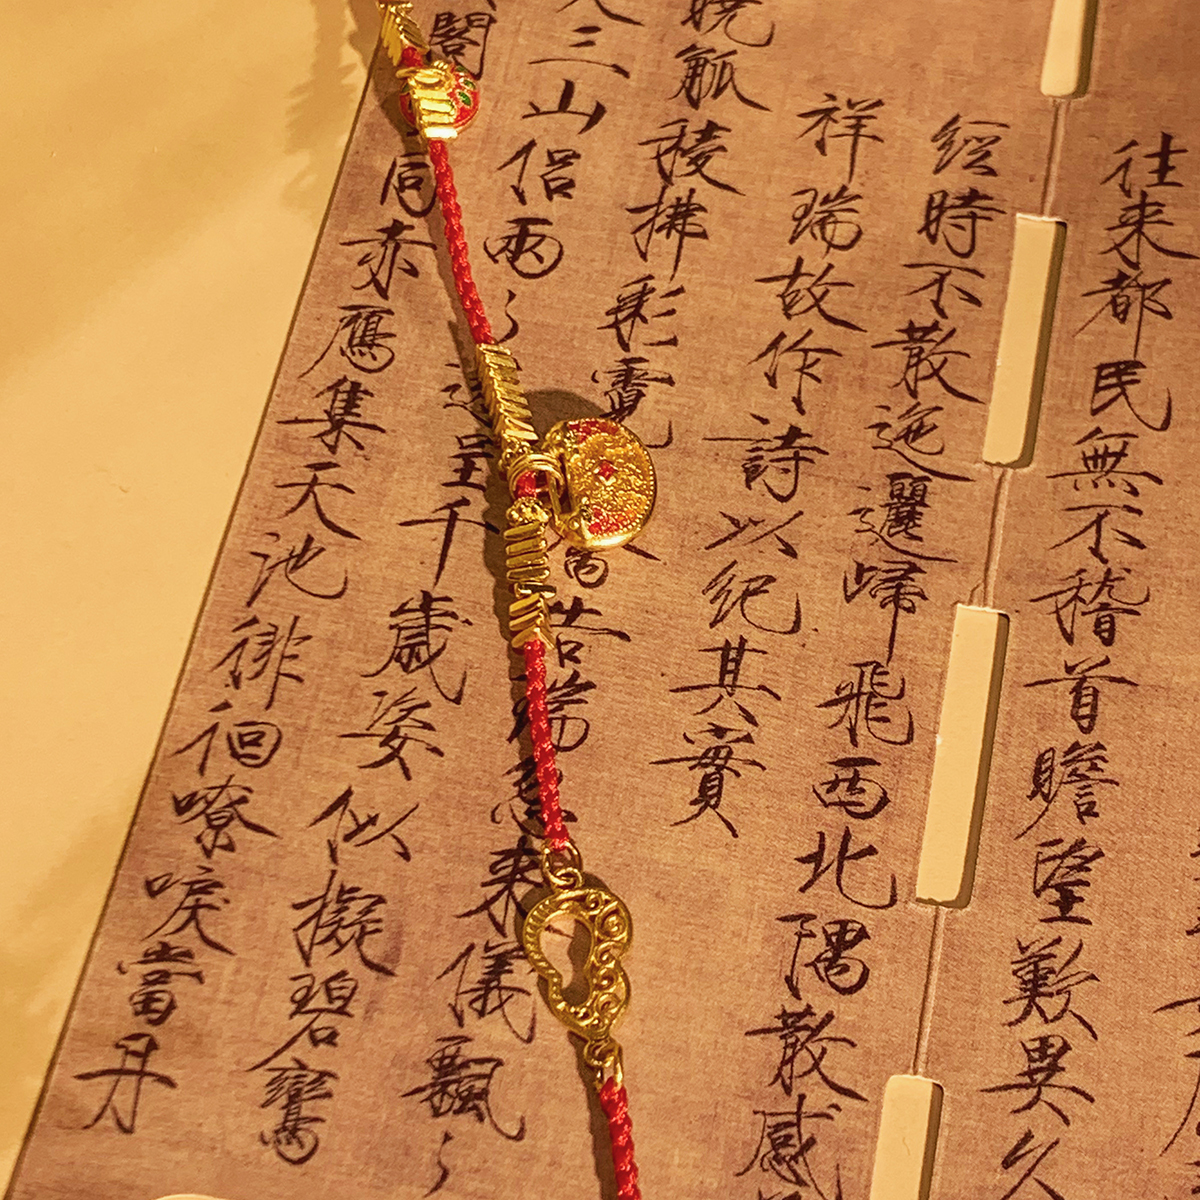 往来都民無不稽首瞻望歎異久
經時不散迤邐歸飛西北隅散感
祥瑞故作詩以紀其實
曉觚稜拂彩霓禽告瑞忽来儀飄〻
三山侶兩〻還呈千歲姿似擬碧鸞
閣同赤鴈集天池徘徊嘹唳當丹